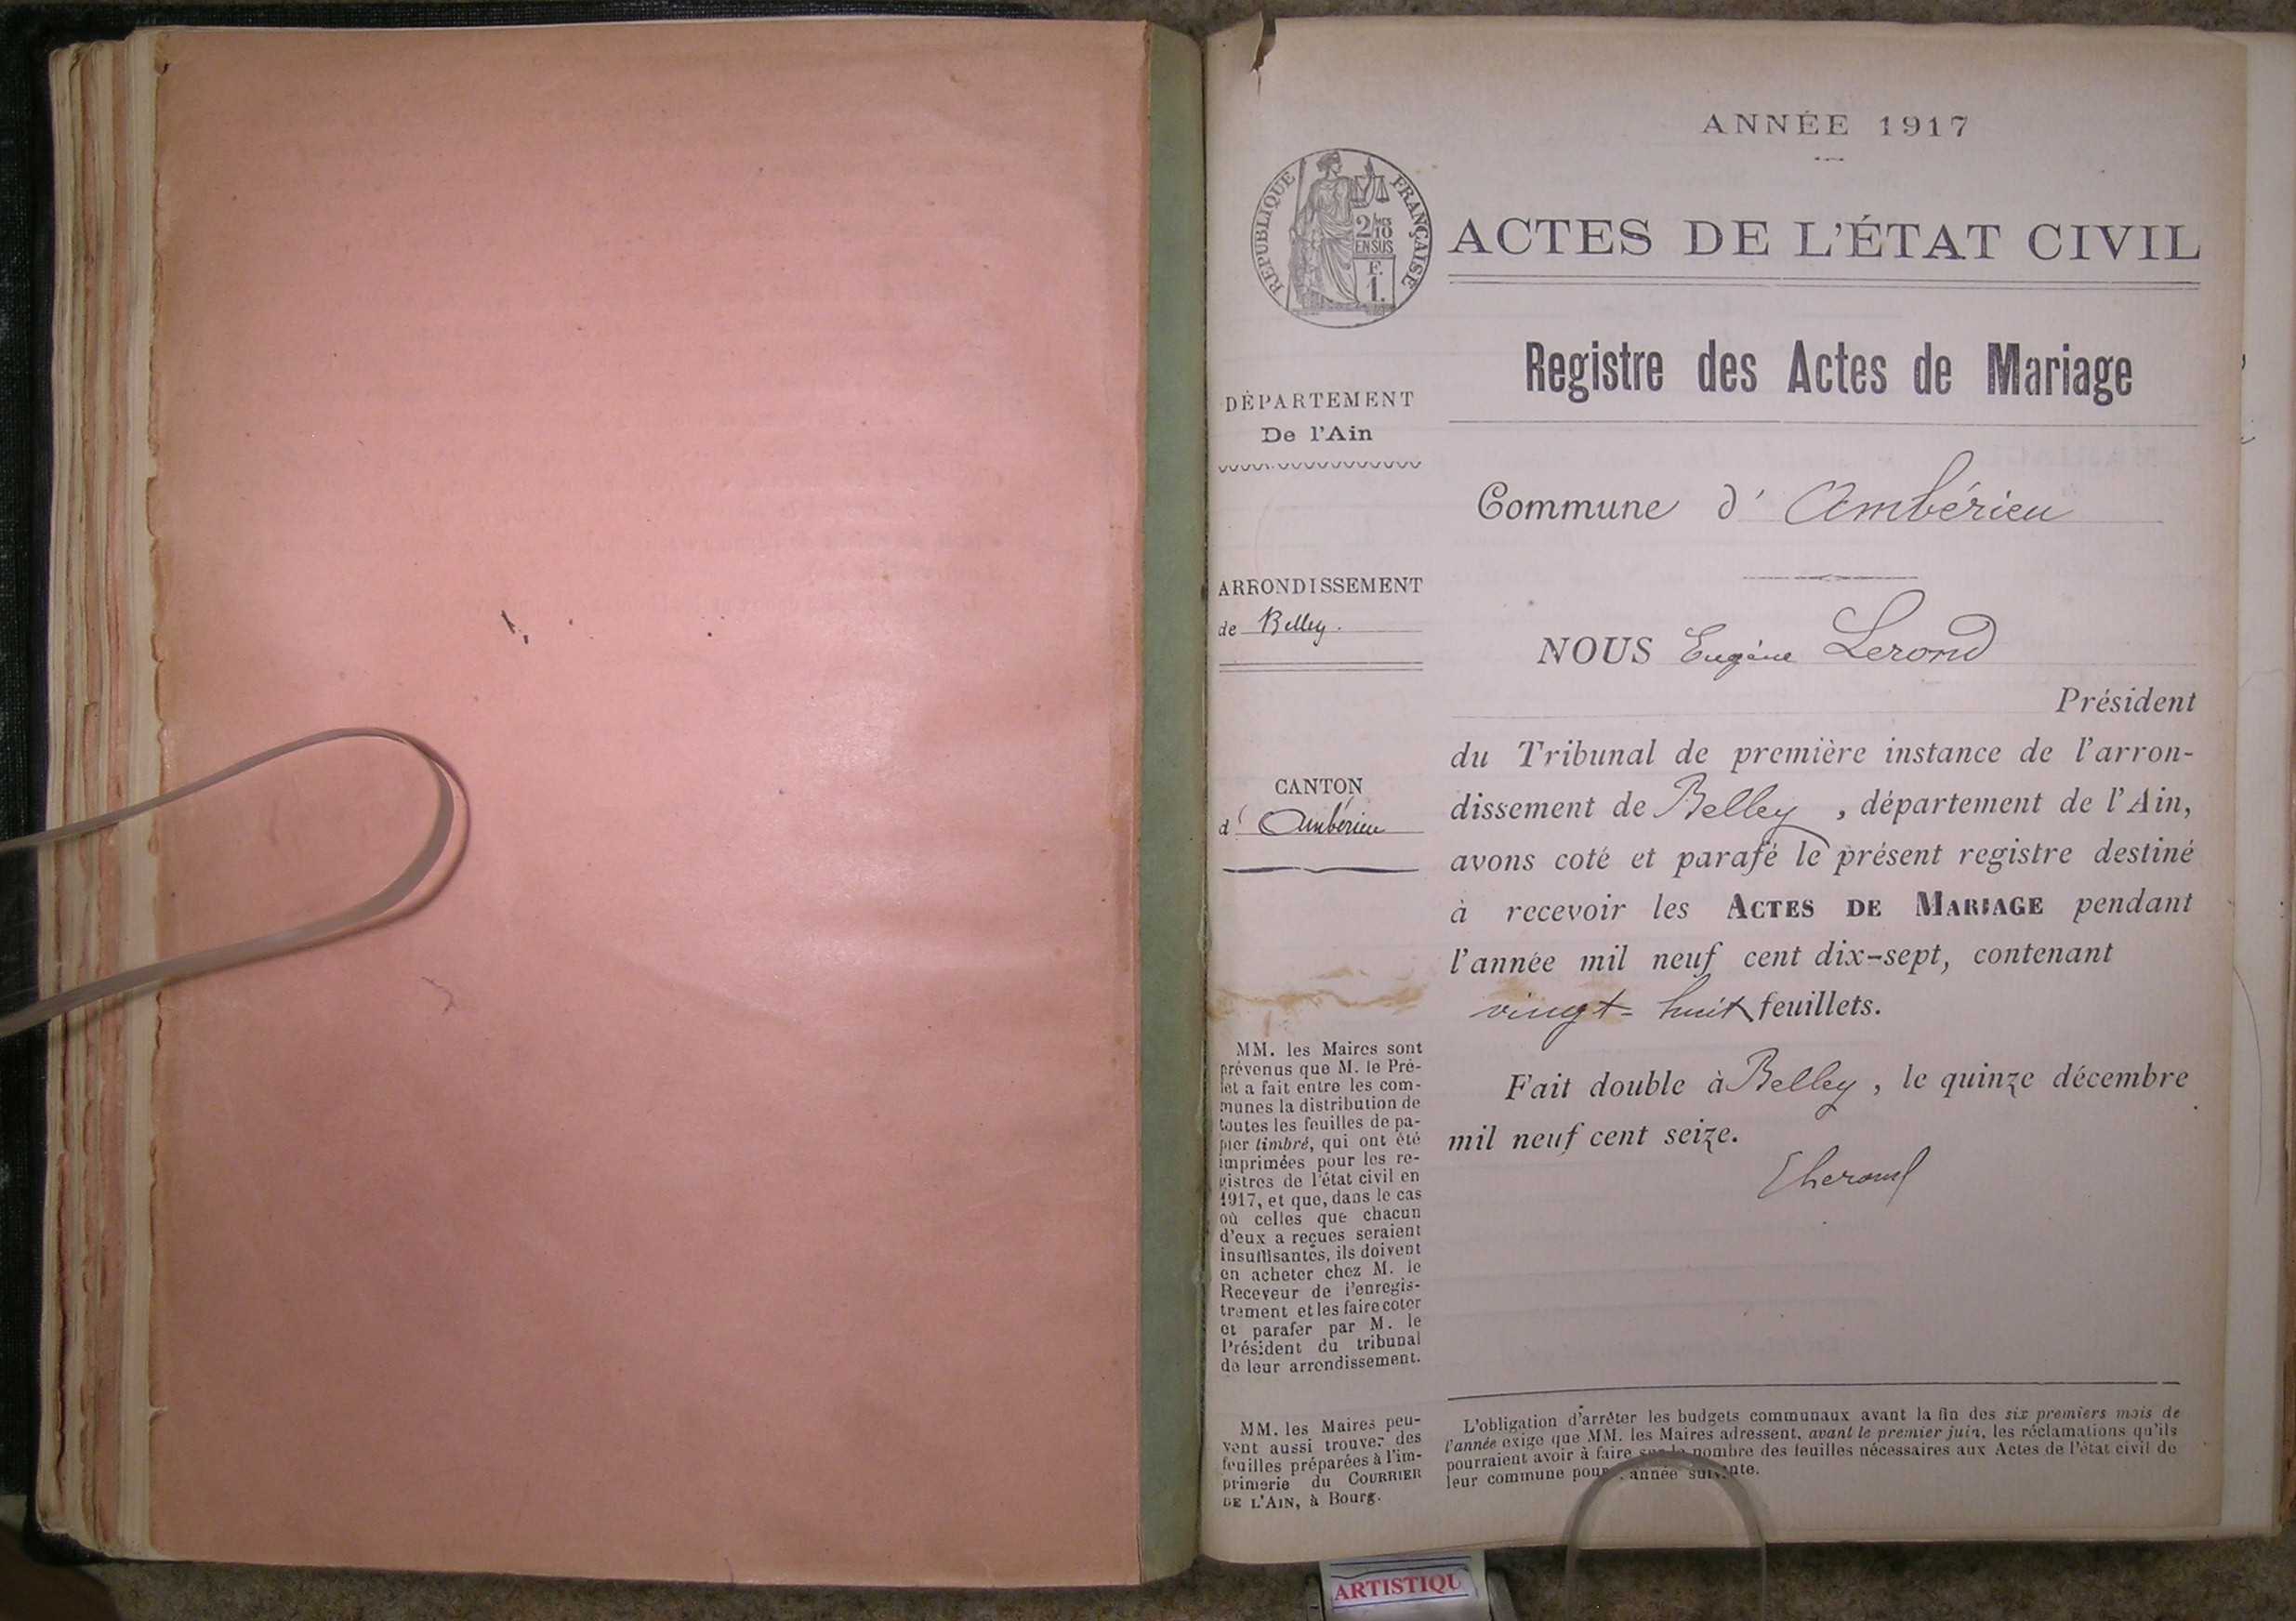 ANNÉE 1917
RÉPUBLIQUE FRANÇAISE
2/10 MES
EN SUS
F.
1.
ACTES DE L'ÉTAT CIVIL
Registre des Actes de Mariage
DÉPARTEMENT
De l'Ain
ARRONDISSEMENT
de Belley.
CANTON
d' Ambérieu
MM. les Maires sont
prévenus que M. le Pré-
fet a fait entre les com-
munes la distribution de
toutes les feuilles de pa-
pier timbré, qui ont été
imprimées pour les re-
gistres de l'état civil en
1917, et que, dans le cas
où celles que chacun
d'eux a reçues seraient
insuffisantes, ils doivent
en acheter chez M. le
Receveur de l'enregis-
trement et les faire coter
et parafer par M. le
Président du tribunal
de leur arrondissement.
MM. les Maires peu-
vent aussi trouver des
feuilles préparées à l'im-
primerie du COURRIER
DE L'AIN, à Bourg.
Commune d' Ambérieu
NOUS Eugène Lerond
Président
du Tribunal de première instance de l'arron-
dissement de Belley, département de l'Ain,
avons coté et parafé le présent registre destiné
à recevoir les ACTES DE MARIAGE pendant
l'année mil neuf cent dix-sept, contenant
vingt-huit feuillets.
Fait double à Belley, le quinze décembre
mil neuf cent seize.
L'obligation d'arrêter les budgets communaux avant la fin des six premiers mois de
l'année exige que MM. les Maires adressent, avant le premier juin, les réclamations qu'ils
pourraient avoir à faire sur le nombre des feuilles nécessaires aux Actes de l'état civil de
leur commune pour l'année suivante.
ARTISTIQU